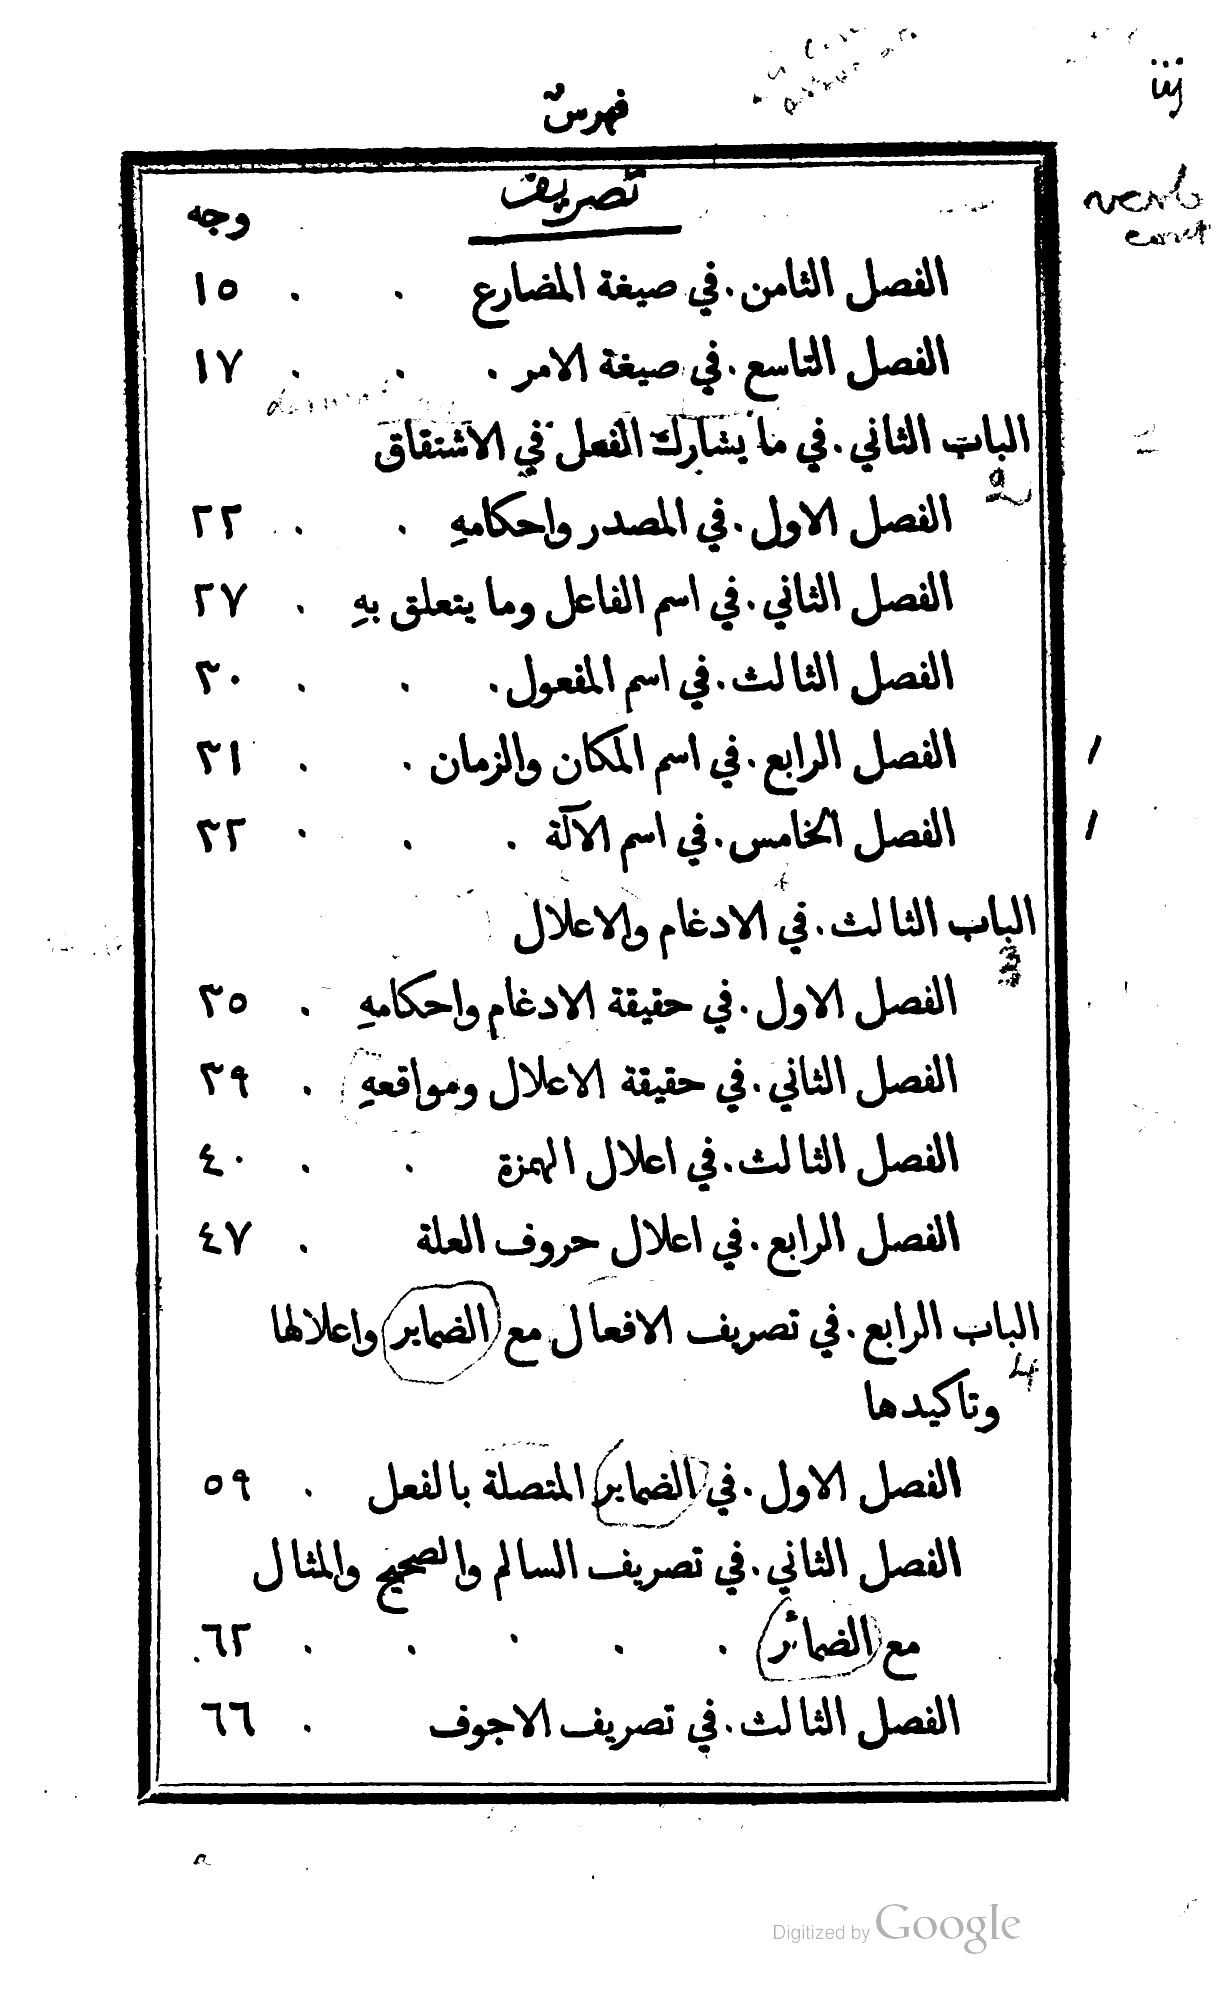 iij
فهرسٌ
verb
تصريف
وجه
الفصل الثامن . في صيغة المضارع . . ١٥
الفصل التاسع . في صيغة الامر . . . ١٧
الباب الثاني . في ما يشارك الفعل في الاشتقاق
2
الفصل الاول . في المصدر واحكامهِ . . ٢٢
الفصل الثاني . في اسم الفاعل وما يتعلق بهِ . ٢٧
الفصل الثالث . في اسم المفعول . . . ٣٠
الفصل الرابع . في اسم المكان والزمان . . ٣١
الفصل الخامس . في اسم الآلة . . . ٣٢
الباب الثالث . في الادغام والاعلال
الفصل الاول . في حقيقة الادغام واحكامهِ . ٣٥
الفصل الثاني . في حقيقة الاعلال ومواقعهِ . ٣٩
الفصل الثالث . في اعلال الهمزة . . ٤٠
الفصل الرابع . في اعلال حروف العلة . ٤٧
الباب الرابع . في تصريف الافعال مع الضماير واعلالها
4
وتاكيدها
الفصل الاول . في الضماير المتصلة بالفعل . ٥٩
الفصل الثاني . في تصريف السالم والصحيح والمثال
مع الضمائر . . . . . ٦٢
الفصل الثالث . في تصريف الاجوف . ٦٦
Digitized by Google